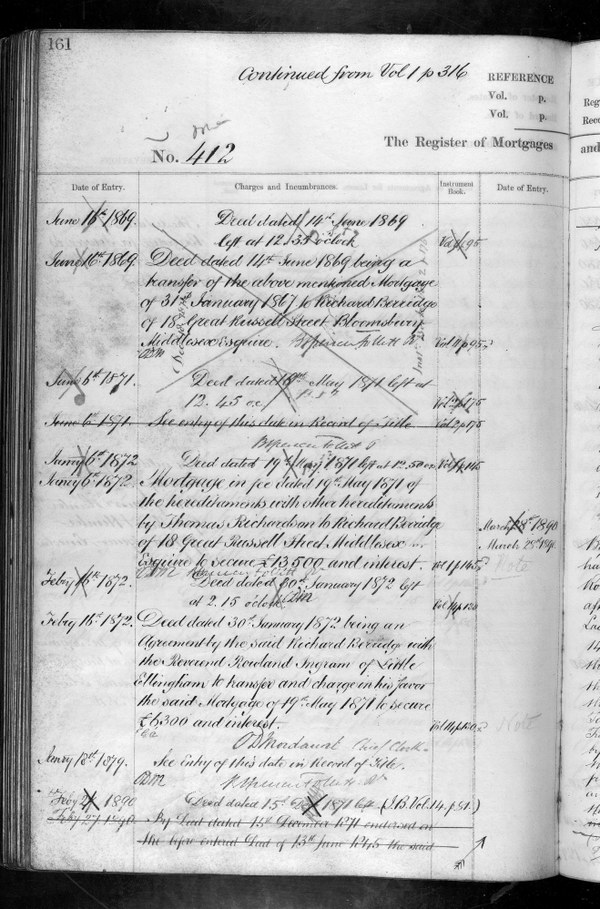 161
Continued from Vol 1 p 316
REFERENCE
Vol. p.
Vol. p.
No. 412
The Register of Mortgages
and
Date of Entry.
Charges and Incumbrances.
Instrument Book.
Date of Entry.
June 16th 1869. Deed dated 14th June 1869
left at 12.35 o'clock
June 16th 1869. Deed dated 14th June 1869 being a
transfer of the above mentioned Mortgage
of 31st January 1867 to Richard Berridge
of 18 Great Russell Street Bloomsbury
Middlesex Esquire. BSpencer Follett R.
ODM
June 6th 1871. Deed dated May 1871 left at
12.45 o.c. Vol 2 p 175
June 6th 1871 See entry of this date in Record of Title Vol 2 p 175
BSpencer Follett
Jany 6th 1872 Deed dated 19th May 1871 left at 12.50 oc
Jany 6th 1872. Mortgage in fee dated 19th May 1871 of
the hereditaments with other hereditaments
by Thomas Richardson to Richard Berridge March 28th 1890
of 18 Great Russell Street Middlesex March 28th 1890
Esquire to secure £13,500 and interest.
ODM
Feby 16th 1872. Deed dated 30th January 1872 left
at 2.15 o'clock ODM
Feby 16th 1872. Deed dated 30th January 1872 being an
Agreement by the said Richard Berridge with
the Reverend Rowland Ingram of Little
Ellingham to transfer and charge in his favor
the said Mortgage of 19th May 1871 to secure
£6300 and interest.
ODMordaunt Chief Clerk.
18th 1879. See Entry of this date in Record of Title.
ODM BSpencer Follett R
Feby 27 1890 Deed dated 15th 1871 left (I.B. Vol. 14. p 81.)
Feby 27 1890 By Deed dated 15th December 1871 endorsed on
the before entered Deed of 13th June 1845 the said